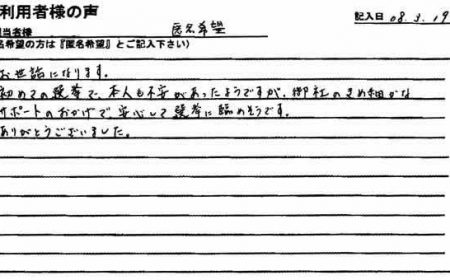 利用者様の声
記入日 08.3.19
当者様 匿名希望
名希望の方は『匿名希望』とご記入下さい)
お世話になります。
初めての選挙で、本人も不安があったようですが、御社のきめ細かな
サポートのおかげで、安心して選挙に臨めそうです。
ありがとうございました。